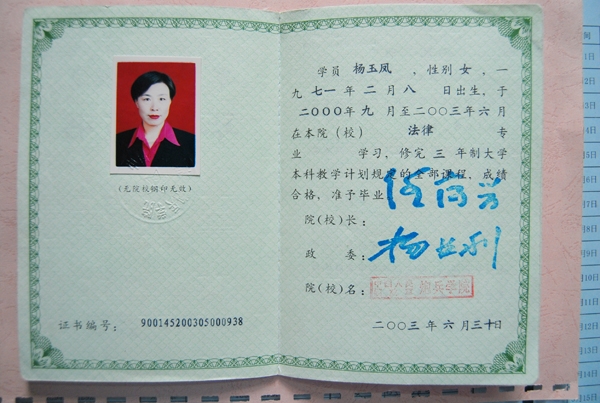 (无院校钢印无效)
证书编号: 900145200305000938
学员 杨玉凤 ,性别 女,一
九 七一 年 二 月 八 日出生,于
二000年 九 月至二00三年 六月
在本院(校) 法律 专
业 学习,修完 三 年制大学
本科教学计划规定的全部课程,成绩
合格,准予毕业
院(校)长:
政 委:
院(校)名:
二00三 年 六 月三十日